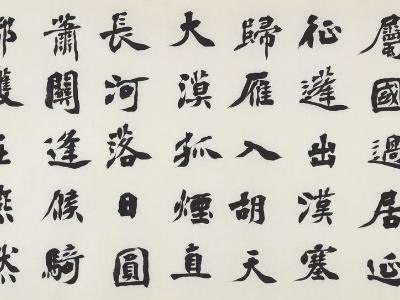 屬國過居延
征蓬出漢塞
歸雁入胡天
大漠孤煙直
長河落日圓
蕭關逢候騎
都護在燕然